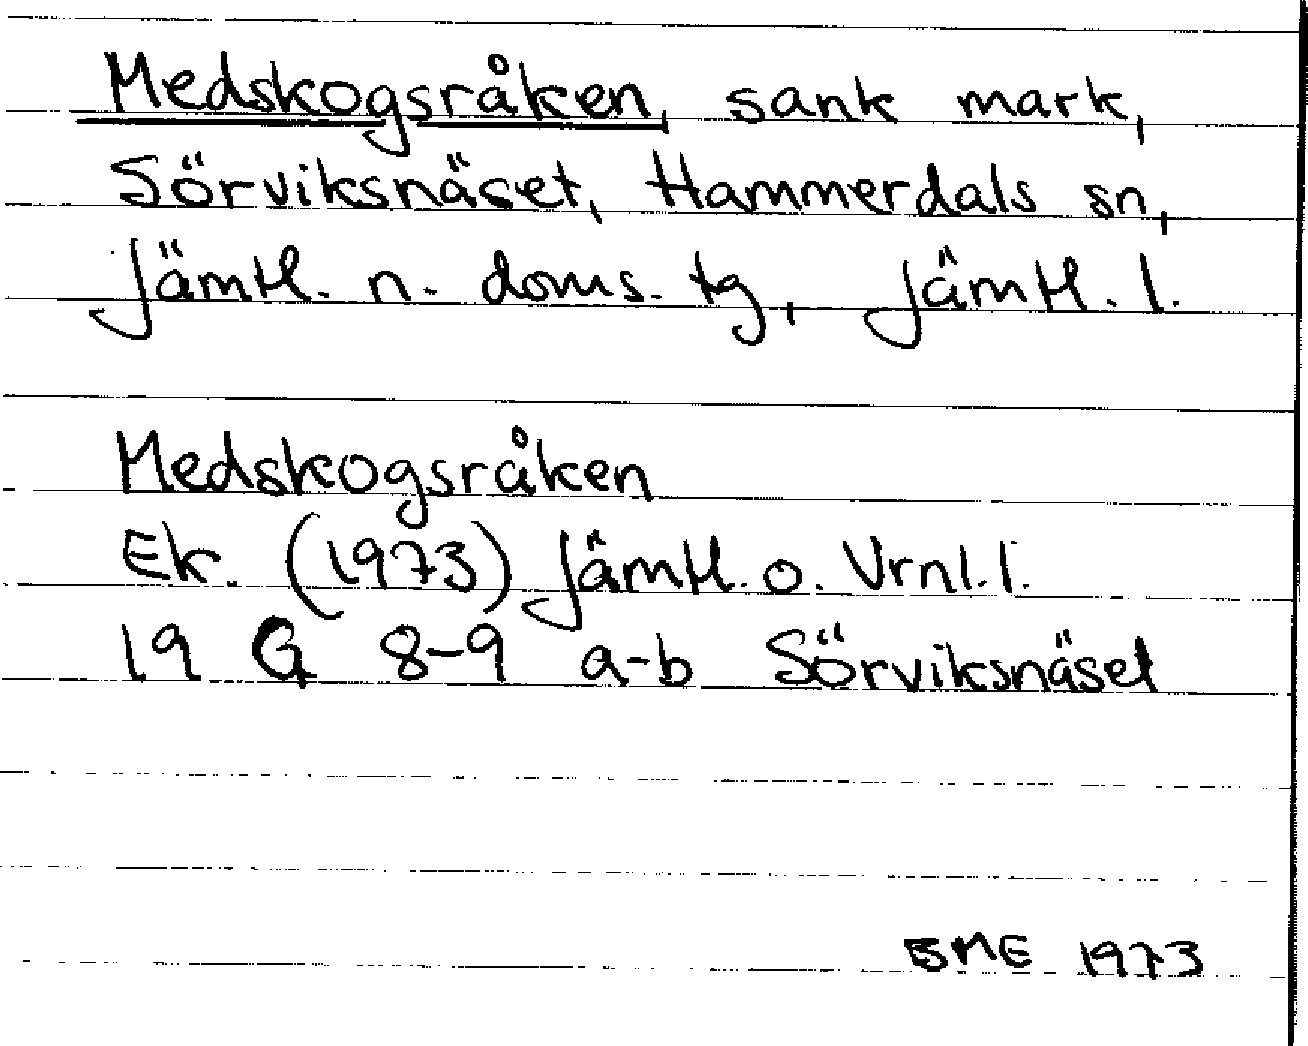 Medskogsråken, sank mark,
Sörviksnäset, Hammerdals sn,
Jämtl. n. doms. tg, Jämtl. l.
Medskogsråken
Ek. (1973) Jämtl. o. Vrnl. l.
19 G 8-9 a-b Sörviksnäset
BME 1973